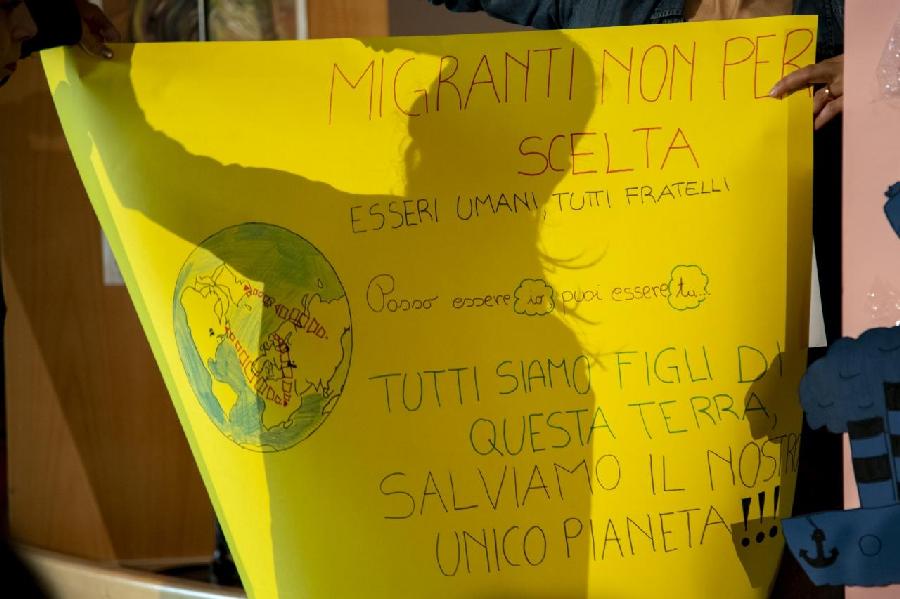 MIGRANTI NON PER
SCELTA
ESSERI UMANI, TUTTI FRATELLI
Posso essere io, puoi essere tu...
TUTTI SIAMO FIGLI DI
QUESTA TERRA,
SALVIAMO IL NOSTRO
UNICO PIANETA!!!